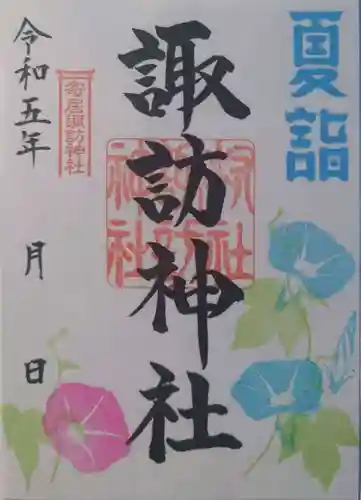 夏詣
諏訪神社
寄居諏訪神社
令和五年　月　日